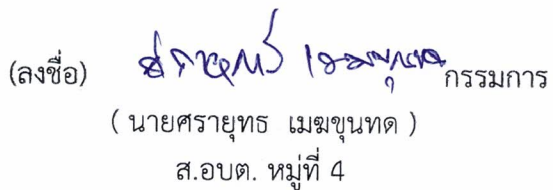 (ลงชื่อ) ศรายุทธ เมฆขุนทด กรรมการ
( นายศรายุทธ เมฆขุนทด )
ส.อบต. หมู่ที่ 4